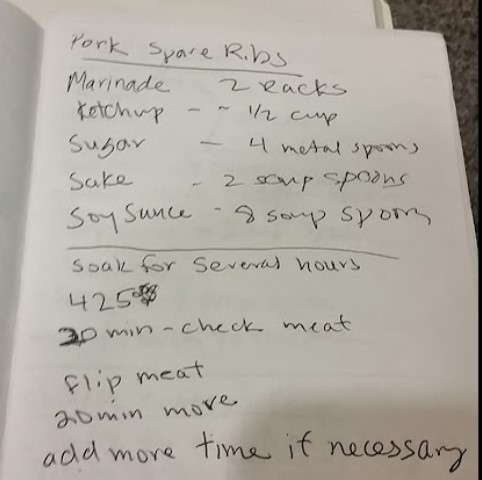 Pork Spare Ribs
Marinade 2 racks
Ketchup - ~ 1/2 cup
Sugar - 4 metal spoons
Sake - 2 soup spoons
Soy Sauce - 8 soup spoons
soak for several hours
425
20 min - check meat
flip meat
20 min more
add more time if necessary